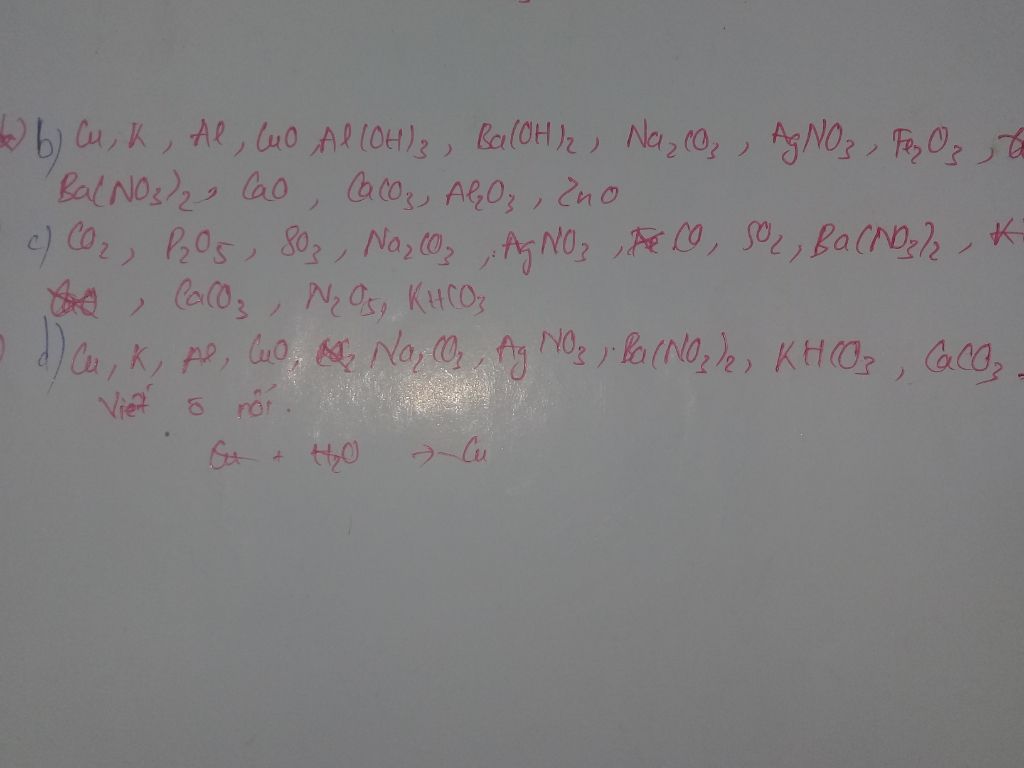 b) Cu, K, Al, CuO, Al(OH)3, Ba(OH)2, Na2CO3, AgNO3, Fe2O3,
Ba(NO3)2, CaO, CaCO3, Al2O3, ZnO
c) CO2, P2O5, SO3, Na2CO3, AgNO3, CO, SO2, Ba(NO3)2,
, CaCO3, N2O5, KHCO3
d) Cu, K, Al, CuO, Na2CO3, AgNO3, Ba(NO3)2, KHCO3, CaCO3
Viết
Cu + H2O → Cu